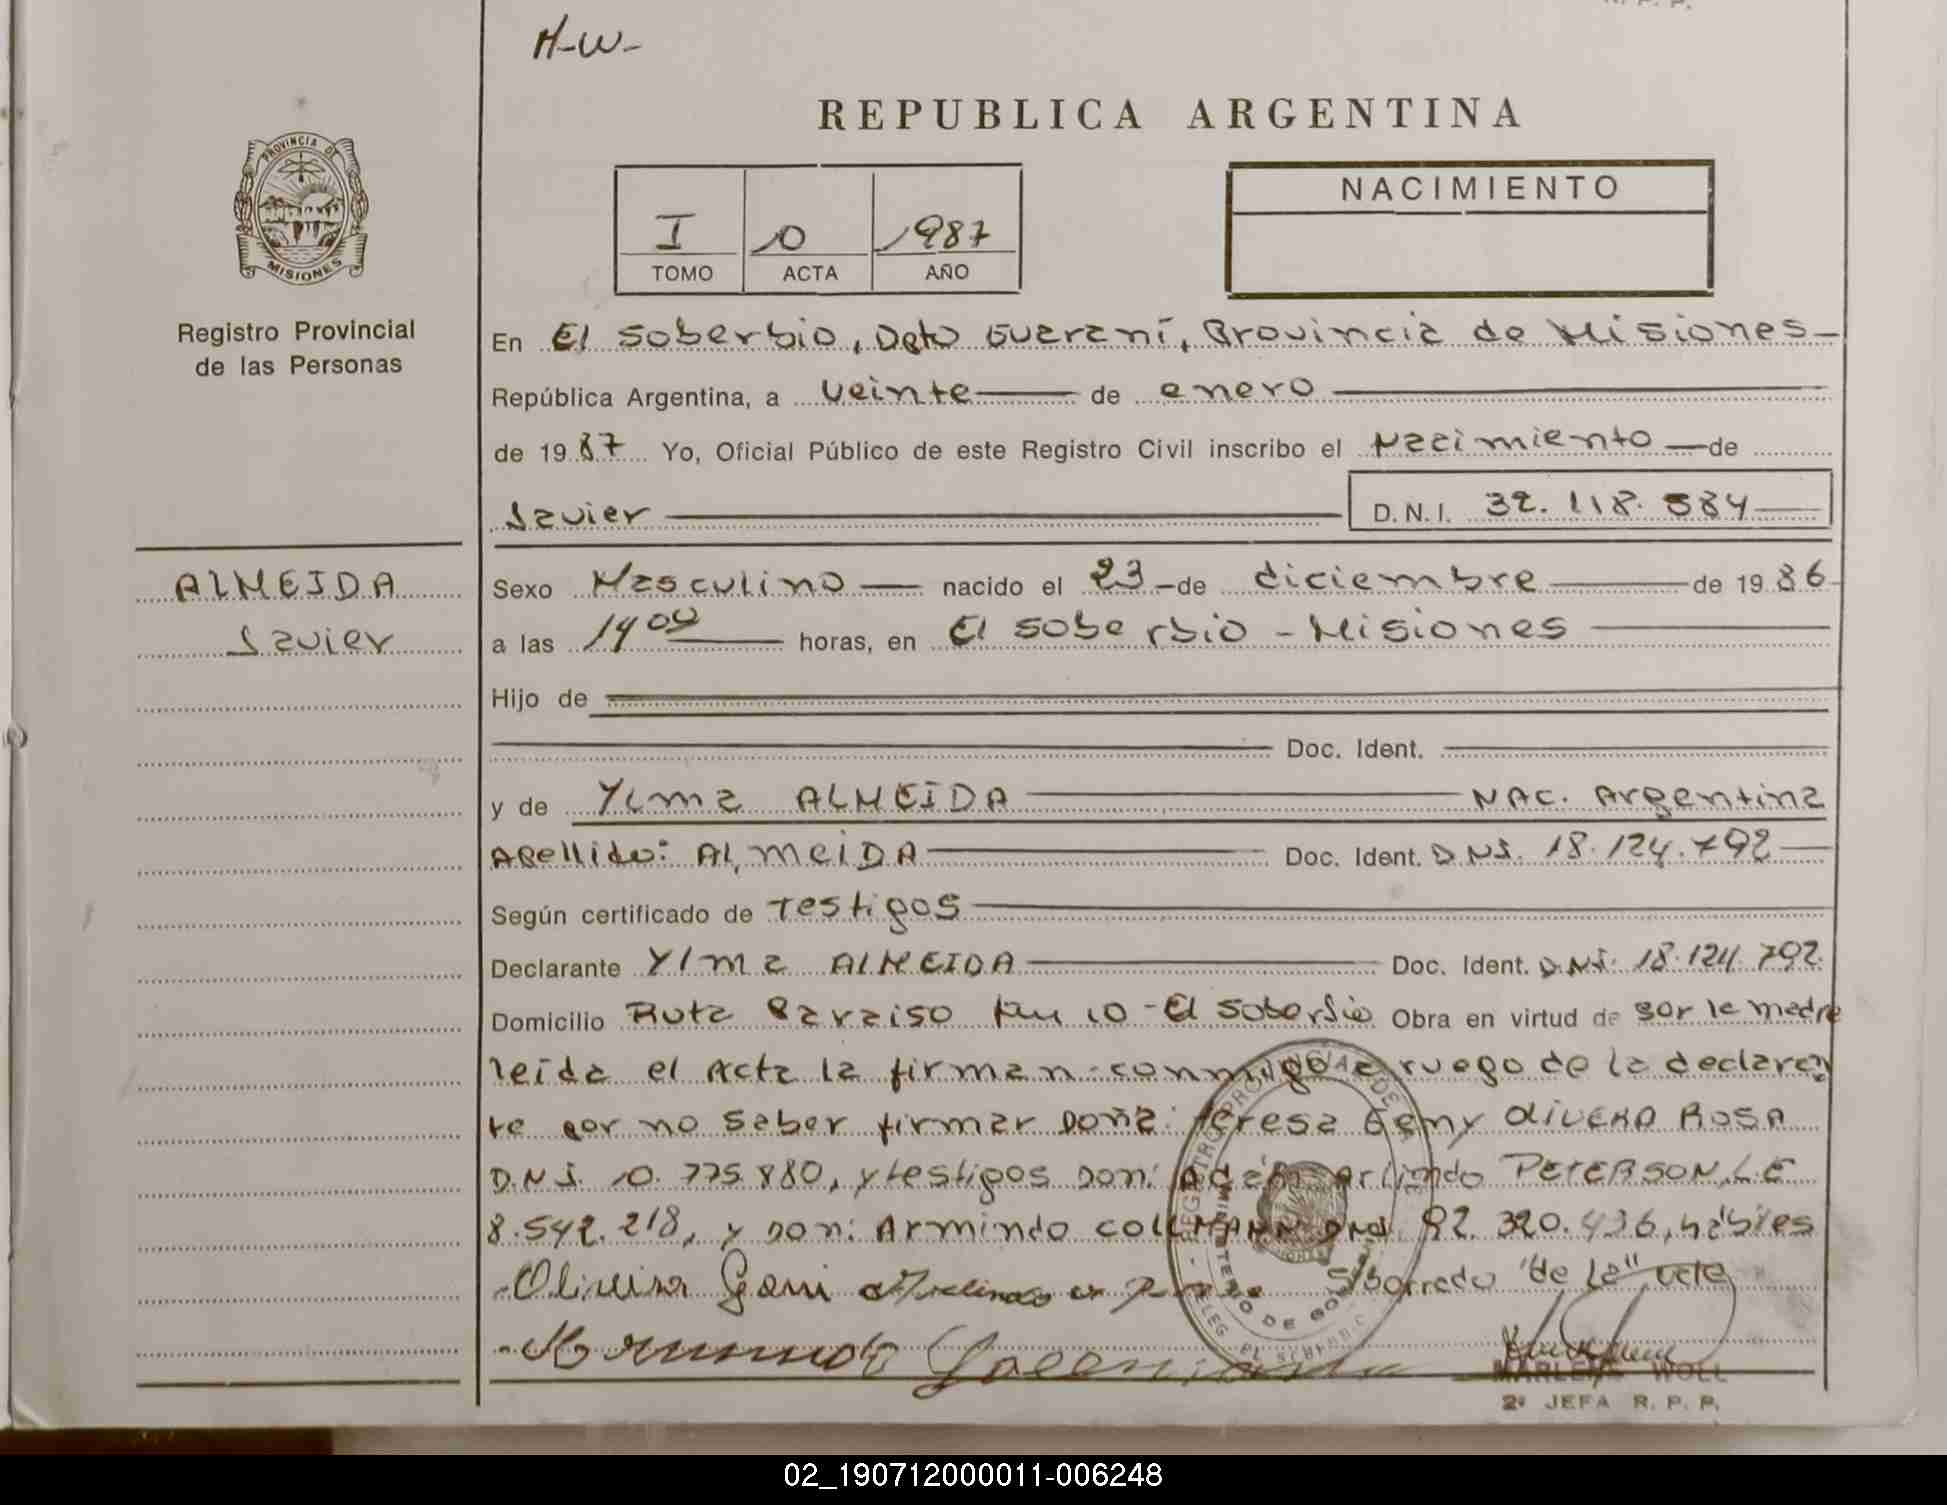 R. P. P.
H-W-
REPUBLICA ARGENTINA
PROVINCIA DE
MISIONES
I
10
1987
TOMO
ACTA
AÑO
NACIMIENTO
Registro Provincial
de las Personas
En El Soberbio, Dpto Guaraní, Provincia de Misiones-
República Argentina, a veinte de enero
de 1987 Yo, Oficial Público de este Registro Civil inscribo el Nacimiento de
Javier
D.N.I. 32.118.584
ALMEIDA
Javier
Sexo Masculino nacido el 23 de diciembre de 1986
a las 1400 horas, en El Soberbio - Misiones
Hijo de
Doc. Ident.
y de Ylma ALMEIDA NAC. Argentina
Apellido: ALMEIDA Doc. Ident. DNI. 18.124.792
Según certificado de Testigos
Declarante Ylma ALMEIDA Doc. Ident. DNI. 18.124.792
Domicilio Ruta Paraiso km 10 - El Soberbio Obra en virtud de ser la madre
leída el Acta la firman conmigo a ruego de la declaran
te por no saber firmar Doña: Teresa Geny OLIVERA ROSA
D.N.I. 10.775.880, y testigos Don: Adém Arlindo PETERSON, L.E
8.542.218, y Don: Armindo COLLMANN DNI. 92.320.436, hábiles
Oliveira Geni S/borrado "de la" vale
MARLENE WOLL
2ª JEFA R. P. P.
02_190712000011-006248